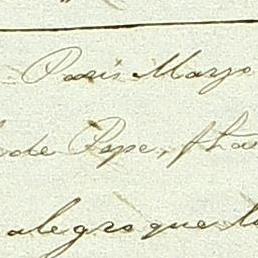 Paris Marzo
de Pepe,
alegro que